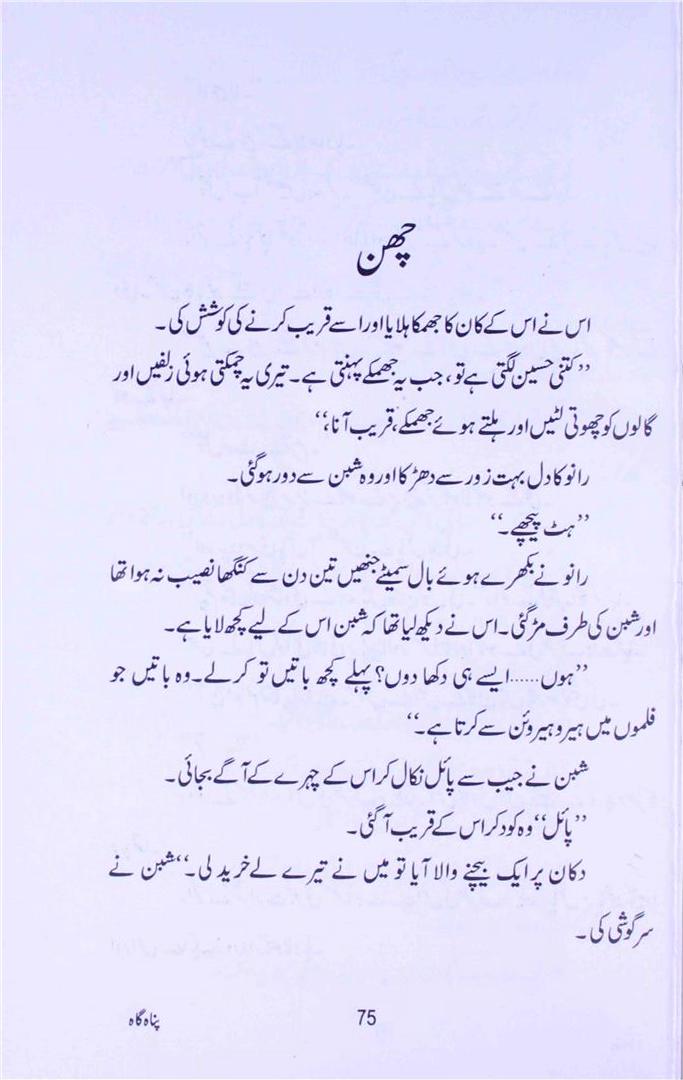 چھن
اس نے اس کے کان کا جھمکا ہلایا اور اسے قریب کرنے کی کوشش کی۔
’’کتنی حسین لگتی ہے تو، جب یہ جھمکے پہنتی ہے۔ تیری یہ چمکتی ہوئی زلفیں اور
گالوں کو چھوتی لٹیں اور ہلتے ہوئے جھمکے، قریب آنا،‘‘
رانو کا دل بہت زور سے دھڑکا اور وہ شبن سے دور ہو گئی۔
’’ہٹ پیچھے۔‘‘
رانو نے بکھرے ہوئے بال سمیٹے جنھیں تین دن سے کنگھا نصیب نہ ہوا تھا
اور شبن کی طرف مڑ گئی۔ اس نے دیکھ لیا تھا کہ شبن اس کے لیے کچھ لایا ہے۔
’’ہوں......ایسے ہی دکھا دوں؟ پہلے کچھ باتیں تو کر لے۔ وہ باتیں جو
فلموں میں ہیرو ہیروئن سے کرتا ہے۔‘‘
شبن نے جیب سے پائل نکال کر اس کے چہرے کے آگے بجائی۔
’’پائل‘‘ وہ کود کر اس کے قریب آ گئی۔
دکان پر ایک بیچنے والا آیا تو میں نے تیرے لے خرید لی۔‘‘ شبن نے
سرگوشی کی۔
75
پناہ گاہ